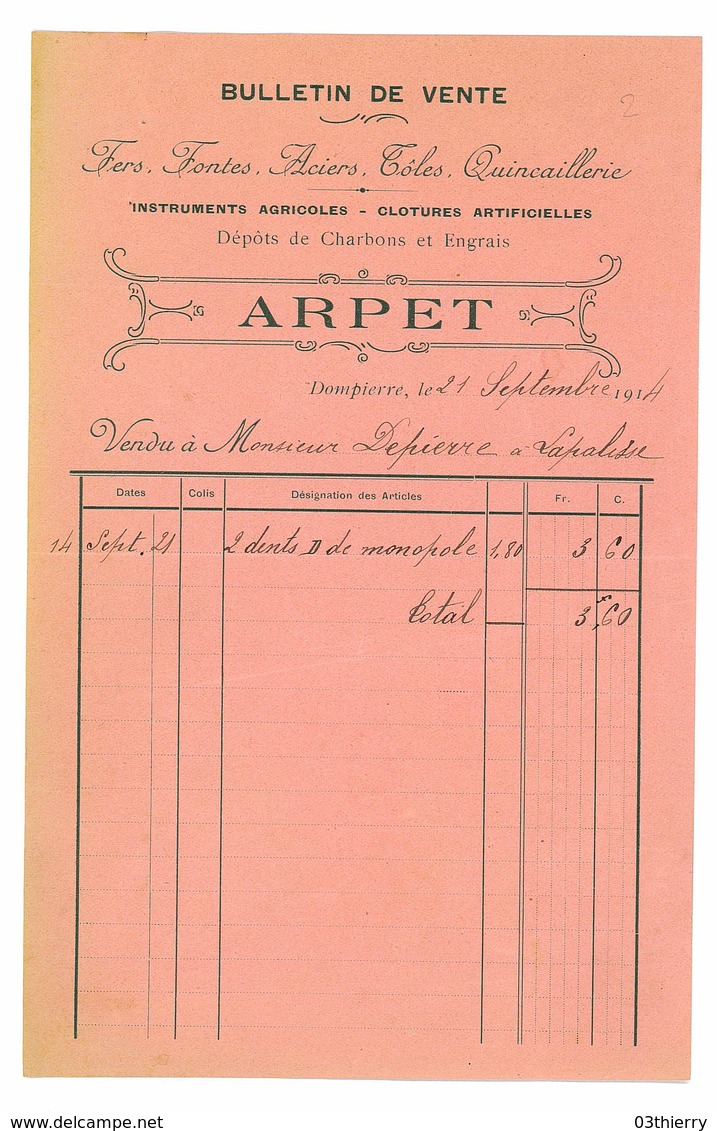 BULLETIN DE VENTE
2
Fers, Fontes, Aciers, Tôles, Quincaillerie
INSTRUMENTS AGRICOLES - CLOTURES ARTIFICIELLES
Dépôts de Charbons et Engrais
ARPET
Dompierre, le 21 Septembre 1914
Vendu à Monsieur Depierre a Lapalisse
Dates Colis Désignation des Articles Fr. C.
14 Sept. 21 2 dents D de monopole 1,80 3 60
Total 3,60
www.delcampe.net 03thierry